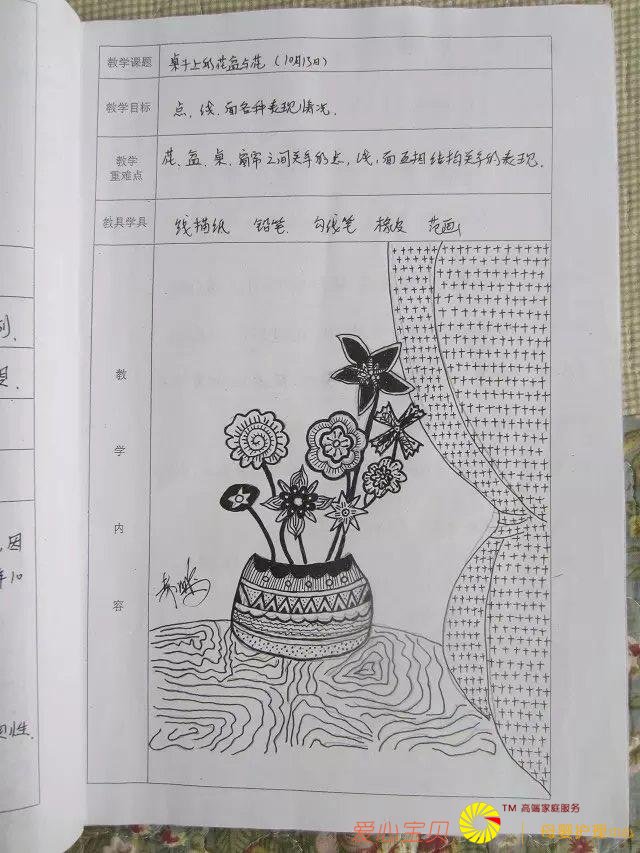 教学课题 桌子上的花盆与花 (10月13日)
教学目标 点、线、面各种表现情况.
教学重难点 花、盆、桌、窗帘之间关系的点,线,面互相结构关系的表现.
教具学具 线描纸 铅笔. 勾线笔 橡皮 范画
教学内容
因
年10
性.
TM 高端家庭服务
爱心宝贝